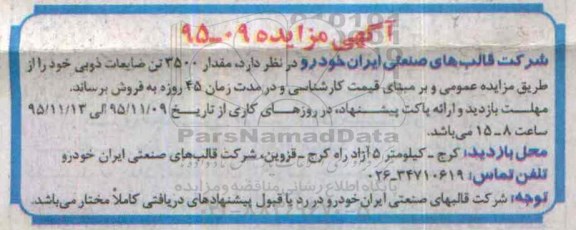 آگهی مزایده ۰۹-۹۵
شرکت قالب‌های صنعتی ایران خودرو در نظر دارد، مقدار ۳۵۰۰ تن ضایعات ذوبی خود را از
طریق مزایده عمومی و بر مبنای قیمت کارشناسی و در مدت زمان ۴۵ روزه به فروش برساند.
مهلت بازدید و ارائه پاکت پیشنهاد، در روزهای کاری از تاریخ ۹۵/۱۱/۰۹ الی ۹۵/۱۱/۱۳
ساعت ۸ - ۱۵ می‌باشد.
ParsNamadData
محل بازدید: کرج - کیلومتر ۵ آزاد راه کرج - قزوین، شرکت قالب‌های صنعتی ایران خودرو
تلفن تماس: ۳۴۷۱۰۶۱۹-۰۲۶
پایگاه اطلاع رسانی مناقصه و مزایده
توجه: شرکت قالبهای صنعتی ایران‌خودرو در رد یا قبول پیشنهادهای دریافتی کاملاً مختار می‌باشد.